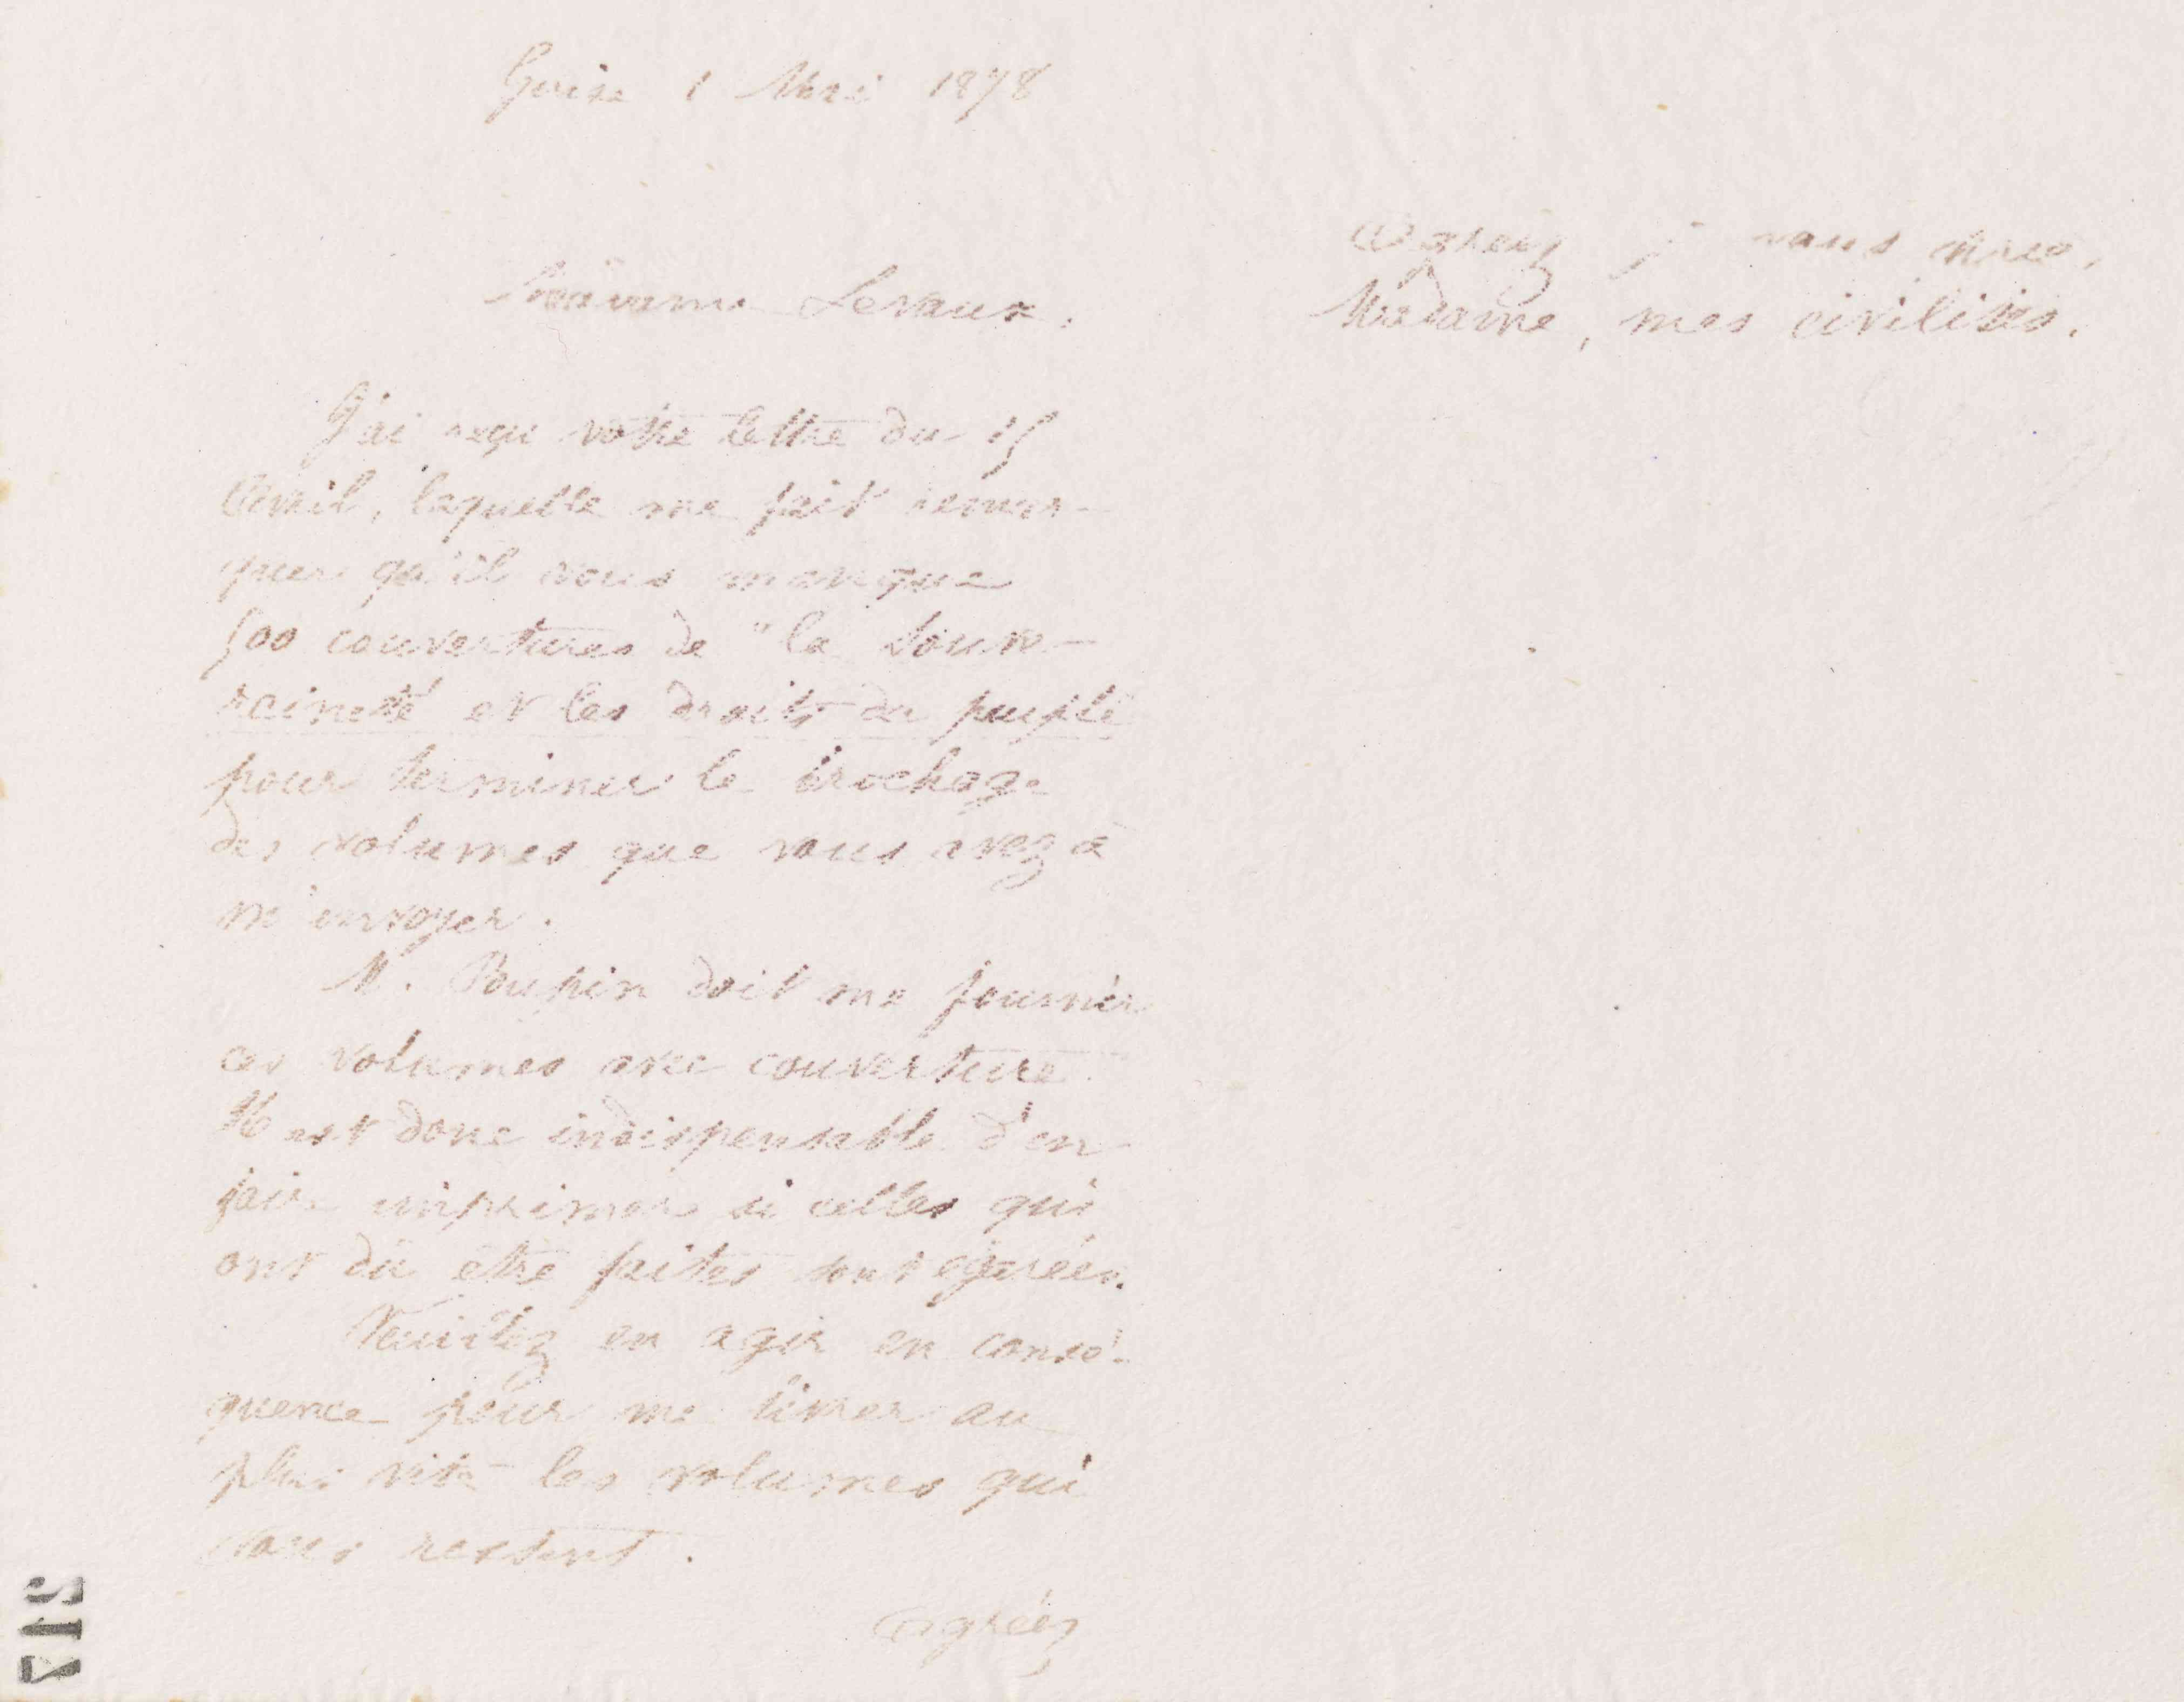 Guise 1 Mai 1878
Madame Levaux.
J'ai reçu votre lettre du 15
Avril, laquelle me fait remar-
quer qu'il vous manque
500 couvertures de "la Souve-
raineté et les droits du peuple
pour terminer le brochage
des volumes que vous avez à
m'envoyer.
M. Poupin doit me fournir
ces volumes avec couverture.
Il est donc indispensable d'en
faire imprimer si celles qui
ont dû être faites sont égarées.
Veuillez en agir en consé-
quence pour me livrer au
plus vite les volumes qui
vous restent.
Agréez
Agréez je vous prie,
Madame, mes civilités.
217